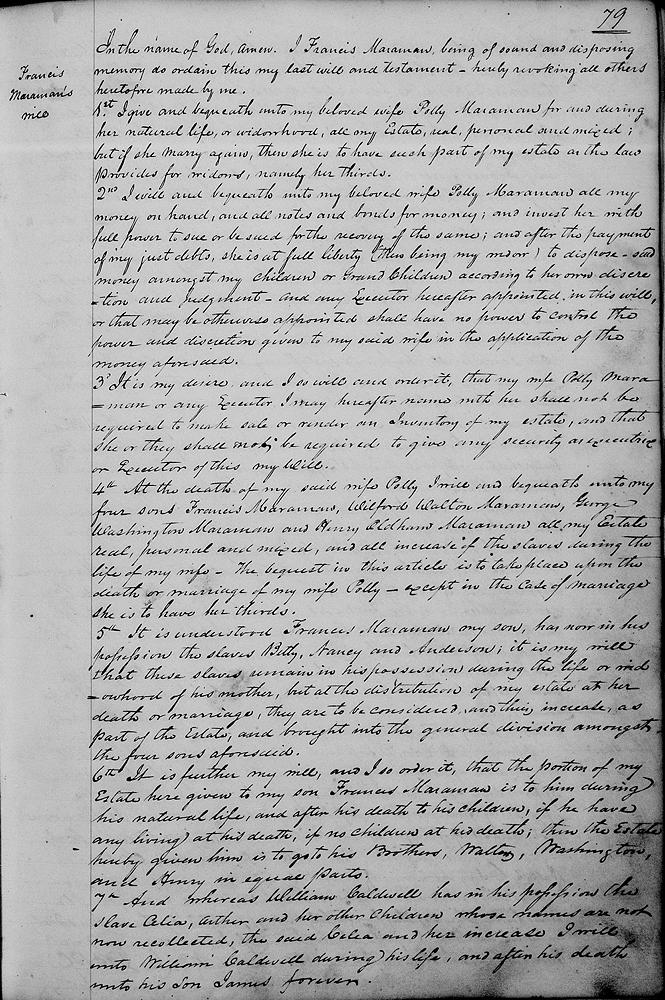 79
Francis
Maraman's
will
In the name of God, amen. I Francis Maraman, being of sound and disposing
memory do ordain this my last will and testament - hereby revoking all others
heretofore made by me.
1st I give and bequeath unto my beloved wife Polly Maraman for and during
her natural life, or widowhood, all my Estate, real, personal and mixed;
but if she marry again, then she is to have such part of my estate as the law
provides for widows, namely her thirds.
2nd I will and bequeath unto my beloved wife Polly Maraman all my
money on hand, and all notes and bonds for money; and invest her with
full power to sue or be sued for the recovery of the same; and after the payment
of my just debts, she is at full liberty (thus being my widow) to dispose - said
money amongst my children or Grand Children according to her own discre
-tion and judgment - and any Executor hereafter appointed, in this will,
or that may be otherwise appointed shall have no power to control the
power and discretion given to my said wife in the application of the
money aforesaid.
3d It is my desire and I so will and order it, that my wife Polly Mara
=man or any Executor I may hereafter name with her shall not be
required to make sale or render an Inventory of my estate, and that
she or they shall not be required to give any security as executrix
or Executor of this my Will.
4th At the death of my said wife Polly I will and bequeath unto my
four sons Francis Maraman, Wilford Walton Maraman, George
Washington Maraman and Henry Oldham Maraman all my Estate
real, personal and mixed, and all increase of the slaves during the
life of my wife - The bequest in this article is to take place upon the
death or marriage of my wife Polly - except in the case of marriage
she is to have her thirds.
5th It is understood Francis Maraman my son, has now in his
possession the slaves Betty, Nancy and Anderson; it is my will
that these slaves remain in his possession during the life or wid
=owhood of his mother, but at the distribution of my estate at her
death or marriage, they are to be considered, and their increase, as
part of the Estate, and brought into the general division amongst
the four sons aforesaid.
6th It is further my will, and I so order it, that the portion of my
Estate here given to my son Francis Maraman is to him during
his natural life, and after his death to his children, if he have
any living at his death, if no children at his death; then the Estate
hereby given him is to go to his Brothers, Walton, Washington,
and Henry in equal parts.
7th And whereas William Caldwell has in his possession the
slave Celia, Arther and her other children whose names are not
now recollected, the said Celea and her increase I will
unto William Caldwell during his life, and after his death
unto his Son James forever.